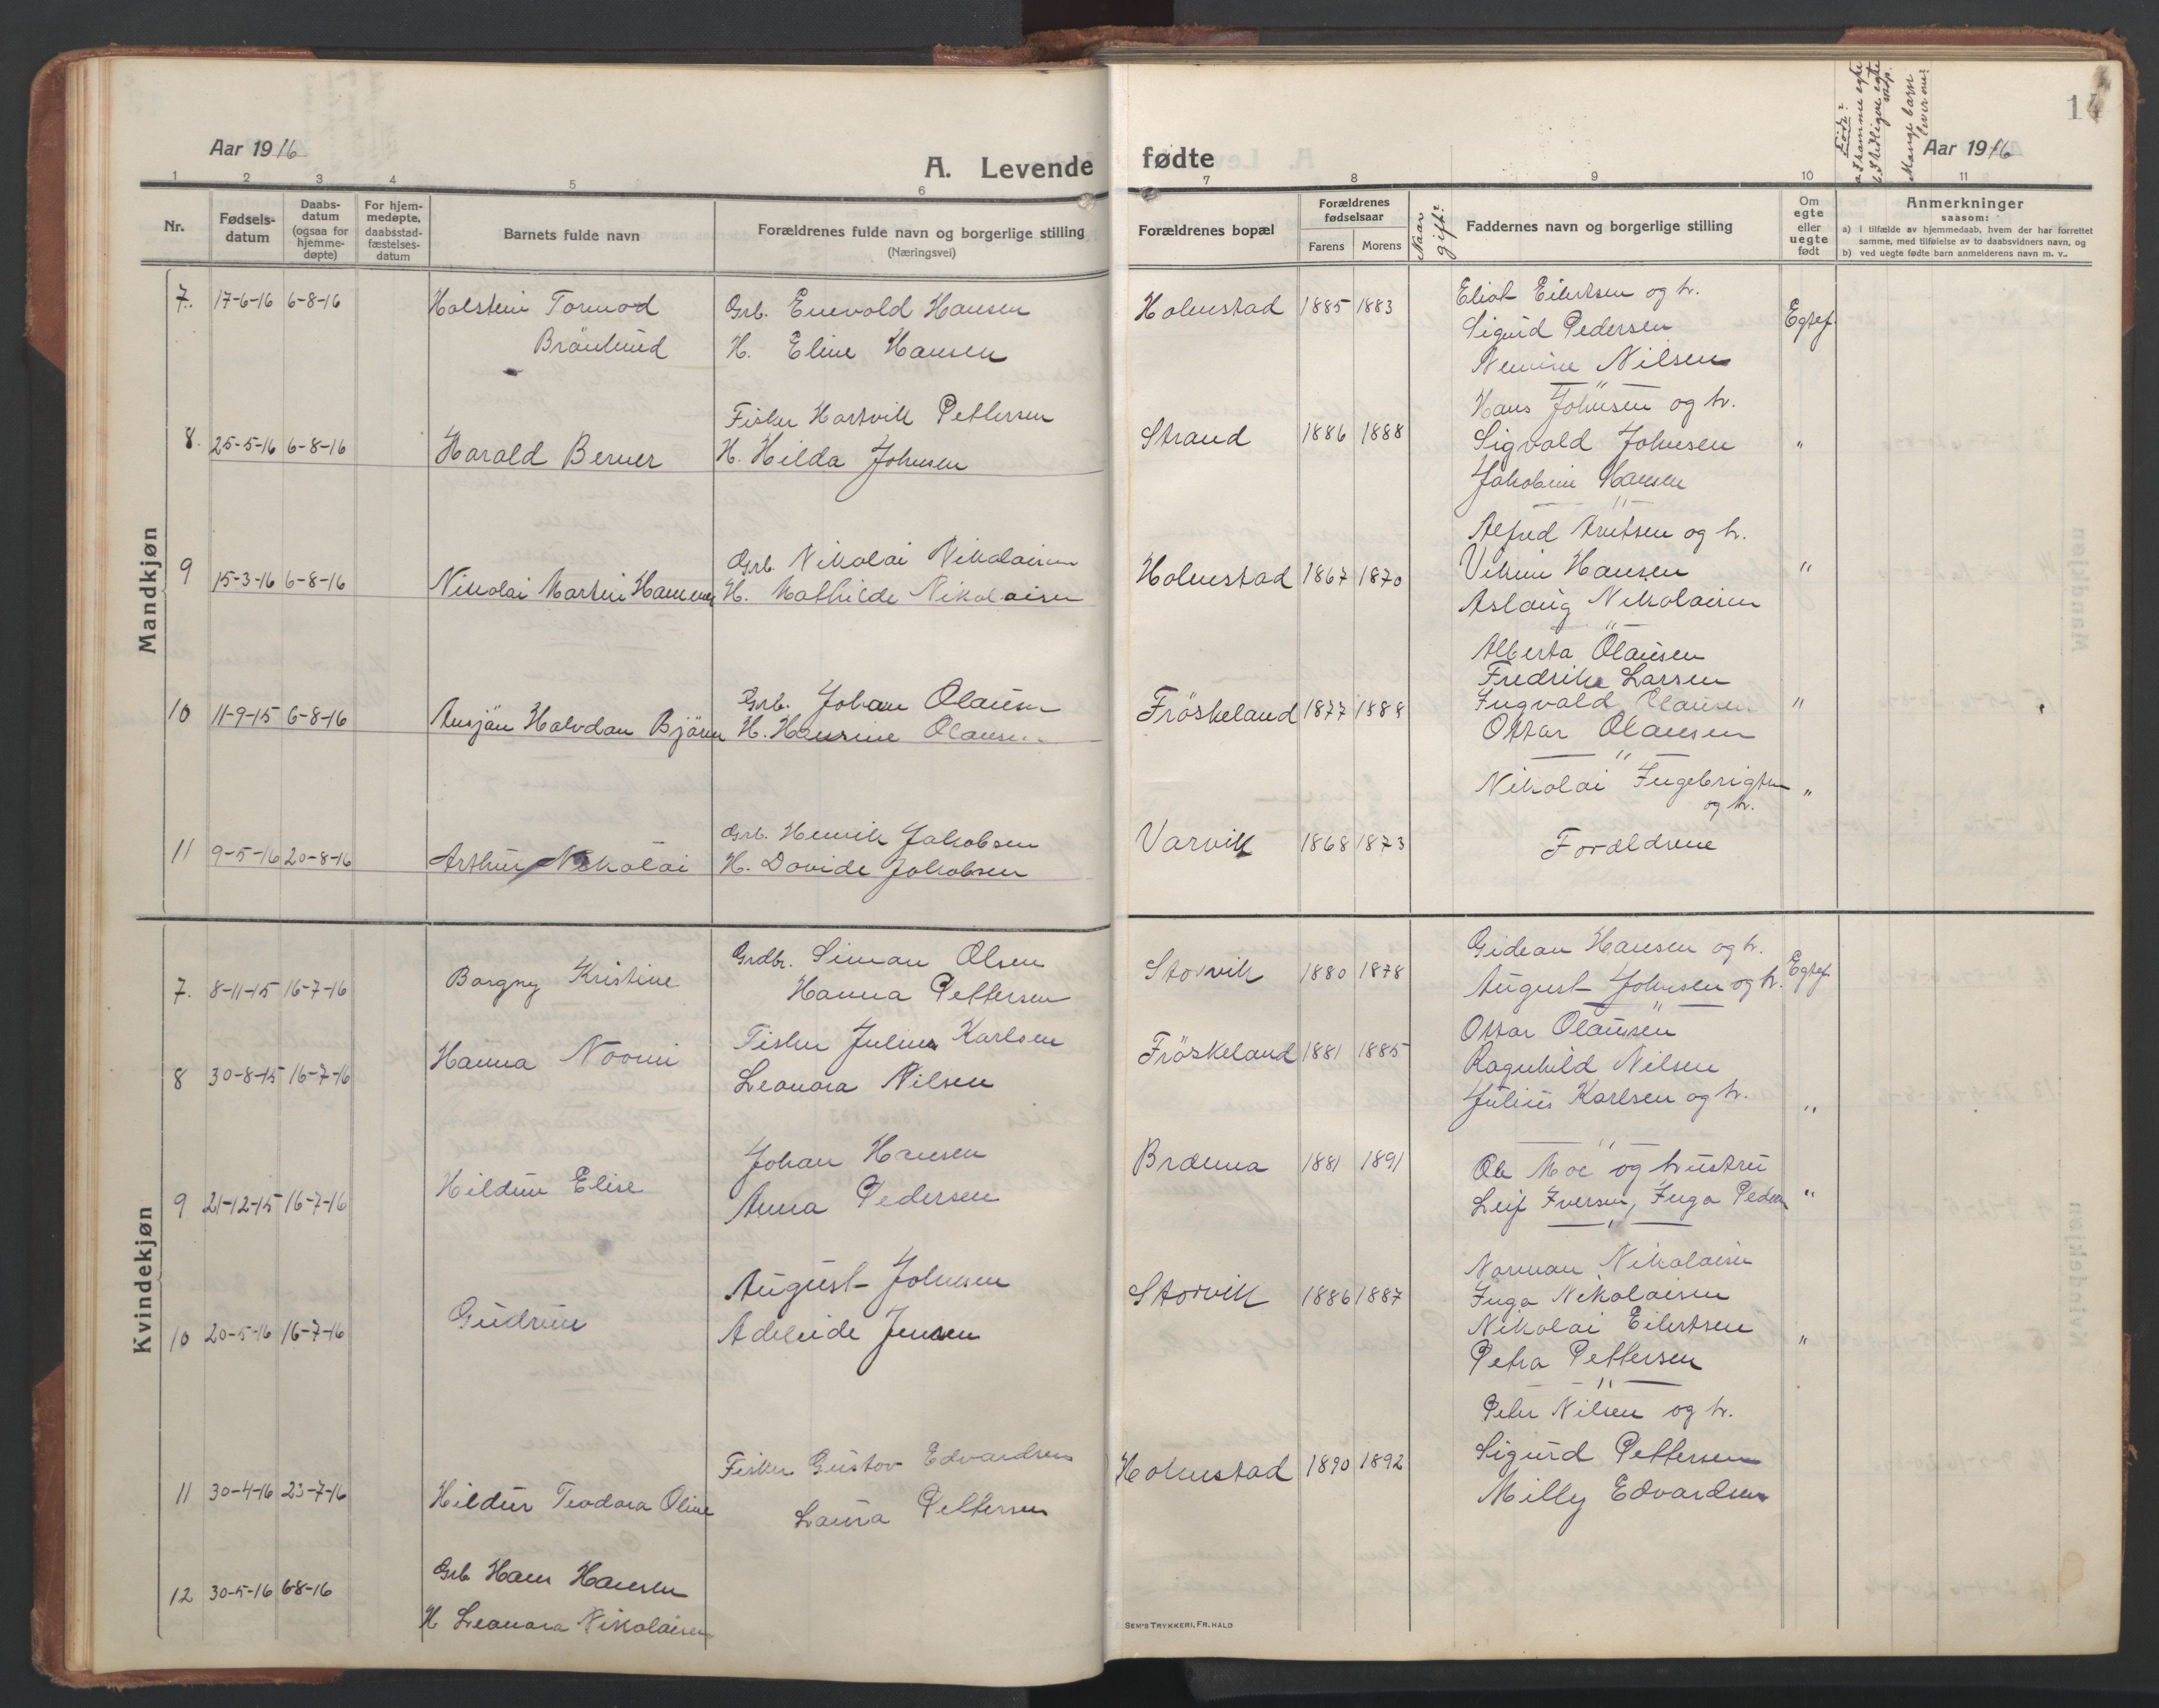 Aar 1916
A. Levende
fødte
Aar 1916
14
1 2 3 4 5 6 7 8 9 10 11
Nr.
Fødsels-
datum
Daabs-
datum
(ogsaa for
hjemme-
døpte)
For hjem-
medøpte,
daabsstad-
fæstelses-
datum
Barnets fulde navn
Forældrenes fulde navn og borgerlige stilling
(Næringsvei)
Forældrenes bopæl
Forældrenes
fødselsaar
Farens Morens
Naar
gift?
Faddernes navn og borgerlige stilling
Om
egte
eller
uegte
født
Anmerkninger
saasom:
a) i tilfælde av hjemmedaab, hvem der har forrettet
samme, med tilføielse av to daabsvidners navn, og
b) ved uegte fødte barn anmelderens navn m. v..
Mandkjøn
7. 17-6-16 6-8-16 Holstein Tormod Grb. Enevold Hansen Holmstad 1885 1883 Eliot Eilertsen og h. Egtef.
Brönlund H. Eline Hansen Sigurd Pedersen
Nilsen
8. 25-5-16 6-8-16 Harald Berner Fisker Hartvik Pettersen Strand 1886 1888 Hans Johnsen og h. "
H. Hilda Johnsen Sigvald Johnsen
Jakobine Hansen
9 15-3-16 6-8-16 Nikolai Martin Hammer Grb. Nikolai Nikolaisen Holmstad 1867 1870 Alfred Arntsen og h. "
H. Mathilde Nikolaisen Hansen
Aslaug Nikolaisen
10 11-9-15 6-8-16 Ansjän Halvdan Bjärn Grb. Johan Olausen Fröskeland 1877 1888 Alberta Olausen "
H. Hansine Olausen Fredrike Larsen
Ingvald Olausen
Ottar Olausen
Nikolai Ingebrigtsen "
og h.
11 9-5-16 20-8-16 Arthur Nikolai Grb. Henrik Jakobsen Varvik 1868 1873 Forældrene
H. Davide Jakobsen
Kvindekjøn
7. 8-11-15 16-7-16 Borgny Kristine Grdbr. Simon Olsen Storvik 1880 1878 Gideon Hansen og h. Egtef
Hanna Pettersen August Johnsen og h.
8 30-8-15 16-7-16 Hanna Noomi Fisker Julius Karlsen Fröskeland 1881 1885 Ottar Olausen
Leonora Nilsen Ragnhild Nilsen
Julius Karlsen og h. "
9 21-12-15 16-7-16 Hildur Elise Johan Hansen Brænna 1881 1891 Ole Moe og hustru
Anna Pedersen Leif Iversen, Inga Peders "
10 20-5-16 16-7-16 Gudrun August Johnsen Storvik 1886 1887 Norman Nikolaisen
Adeleide Jensen Inga Nikolaisen
Nikolai Eilertsen "
Petra Pettersen
11 30-4-16 23-7-16 Hildur Teodora Oline Fisker Gustav Edvardsen Holmstad 1890 1892 Peter Nilsen og h.
Laura Pettersen Sigurd Pettersen
Milly Edvardsen
12 30-5-16 6-8-16 Grb Hans Hansen
H Leonora Nikolaisen
SEM'S TRYKKERI, FR. HALD